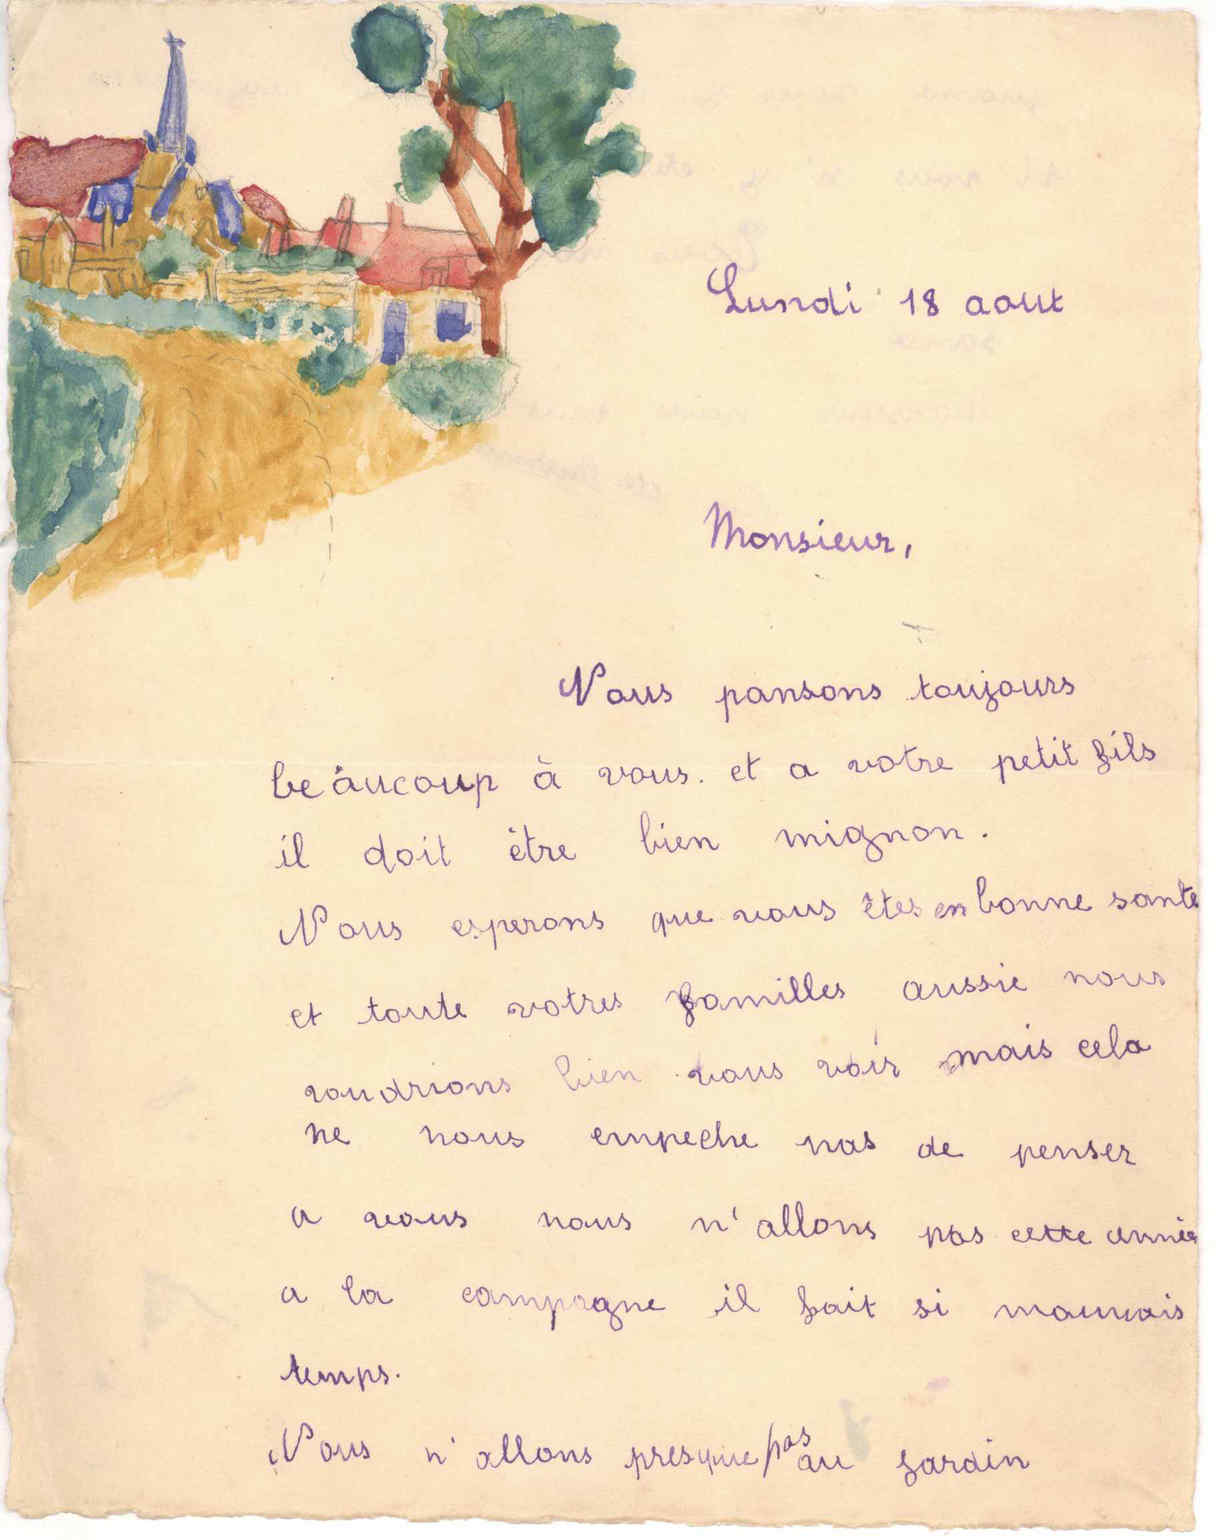 Lundi 18 aout
Monsieur,
Nous pansons toujours
beaucoup à vous. et a votre petit fils
il doit être bien mignon.
Nous esperons que vous êtes en bonne sante
et toute votres familles aussie nous
voudrions bien vous voir mais cela
ne nous empeche pas de penser
a vous nous n'allons pas cette année
a la campagne il fait si mauvais
temps.
Nous n'allons presque pas au jardin